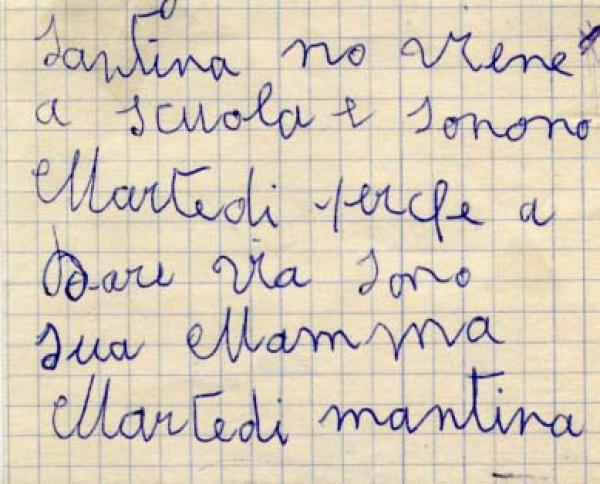 Santina no viene
a scuola e sonono
Martedi perche a
Dare via sono
sua Mamma
Martedi mantina